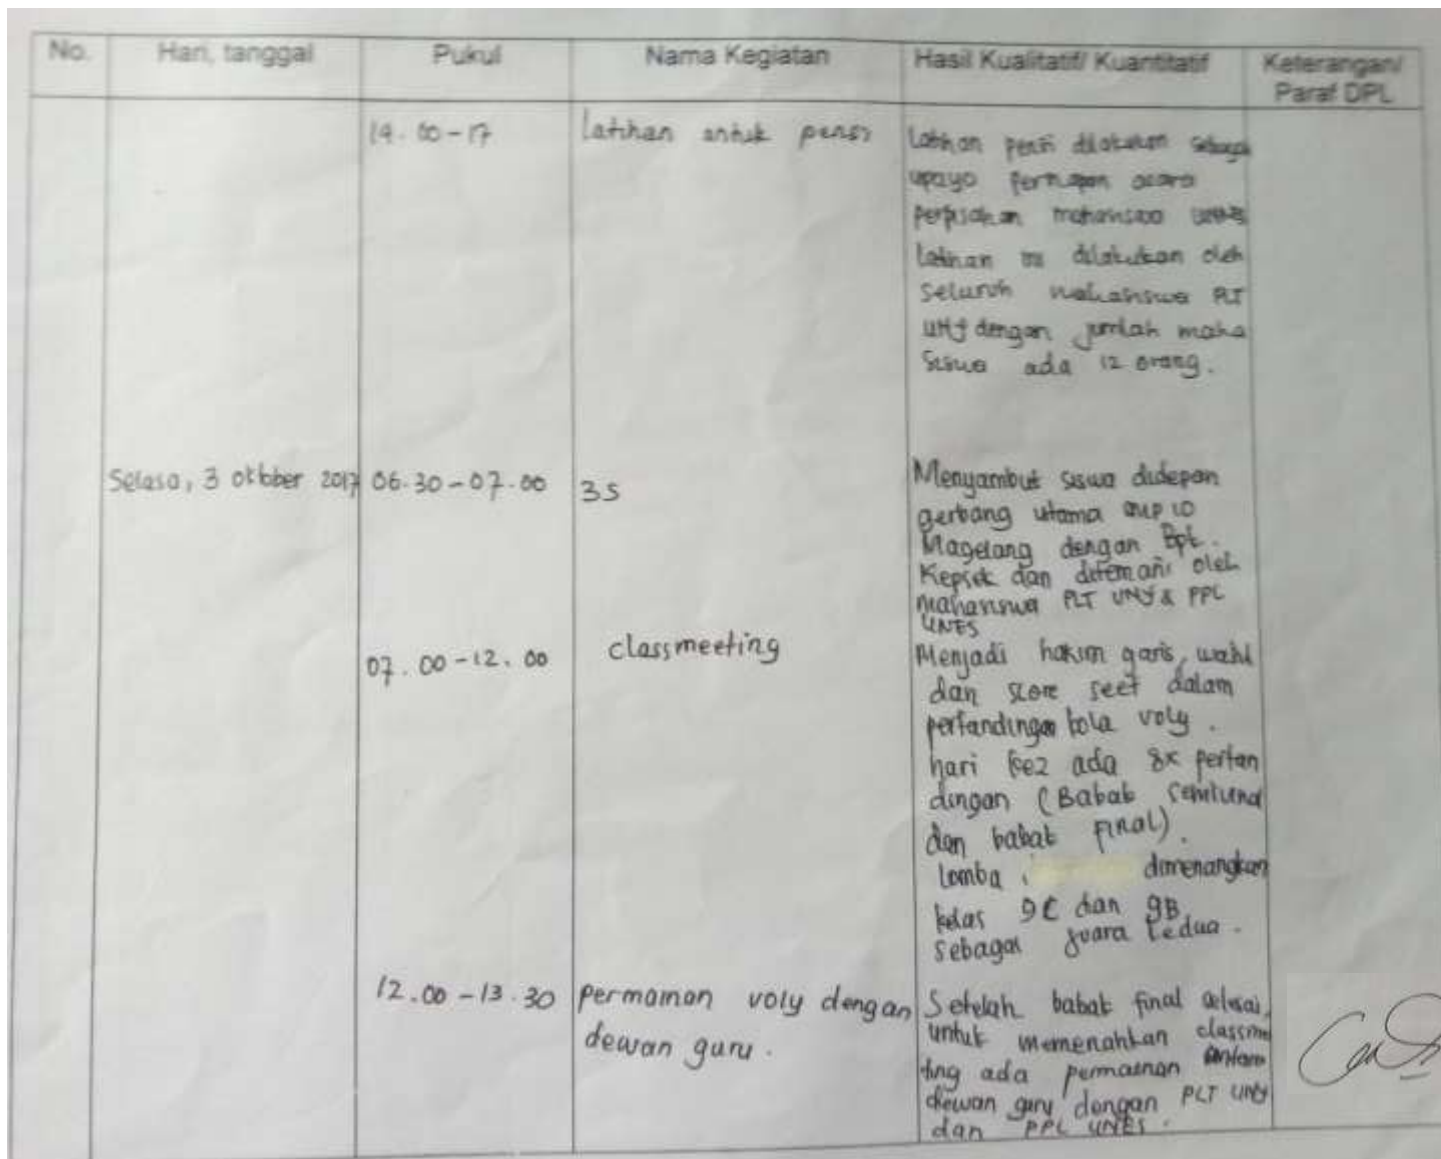 No. Hari, tanggal Pukul Nama Kegiatan Hasil Kualitatif/ Kuantitatif Keterangan/
Paraf DPL
14.00-17 Latihan untuk pensi Latihan pensi dilakukan sebagai
upaya acara
perpisahan mahasiswa UNNES
Latihan ini dilakukan oleh
seluruh mahasiswa PLT
UNY dengan jumlah maha
siswa ada 12 orang.
Selasa, 3 oktober 2017 06.30-07.00 3S Menyambut siswa didepan
gerbang utama SMP 10
Magelang dengan Bpk.
Kepsek dan ditemani oleh
mahasiswa PLT UNY & PPL
UNES
07.00-12.00 classmeeting Menjadi hakim garis, wasit
dan score seet dalam
pertandingan bola voly.
hari ke2 ada 8x pertan
dingan (Babak semifinal
dan babak final).
Lomba dimenangkan
kelas 9C dan 9B
sebagai juara kedua.
12.00-13.30 permainan voly dengan Setelah babak final selesai,
dewan guru. untuk memeriahkan classme
ting ada permainan antara
dewan guru dengan PLT UNY
dan PPL UNES.